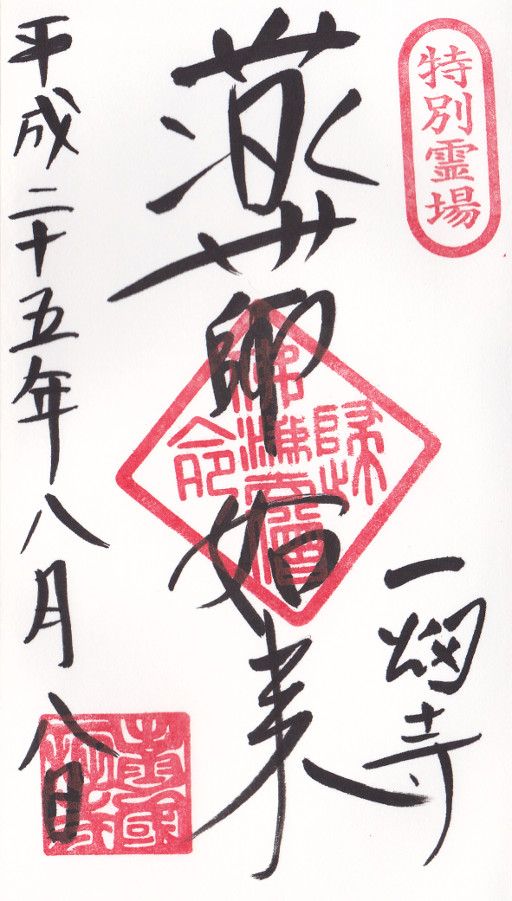 特別霊場
薬師如来
一畑寺
平成二十五年八月八日